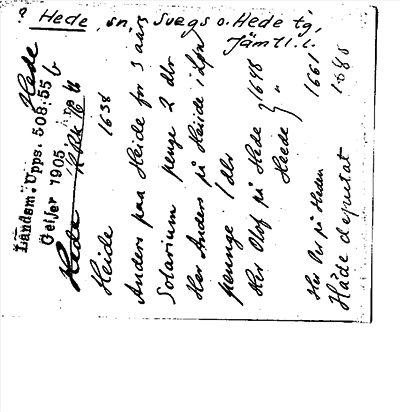 Hede, sn, Svegs o. Hede tg,
Jämtl. l.
Hede
Landsm. Upps. 508:55 b
Geijer 1905
Hede
Heide 1638
Anders paa Heide for 3 aars
Solarium penge 2 dlr
Her Anders på Heiide i Løn
penge 1 dlr
Her Olof på Hede } 1648
Heede } "
Her Per på Heden 1661
Häde deputat 1688